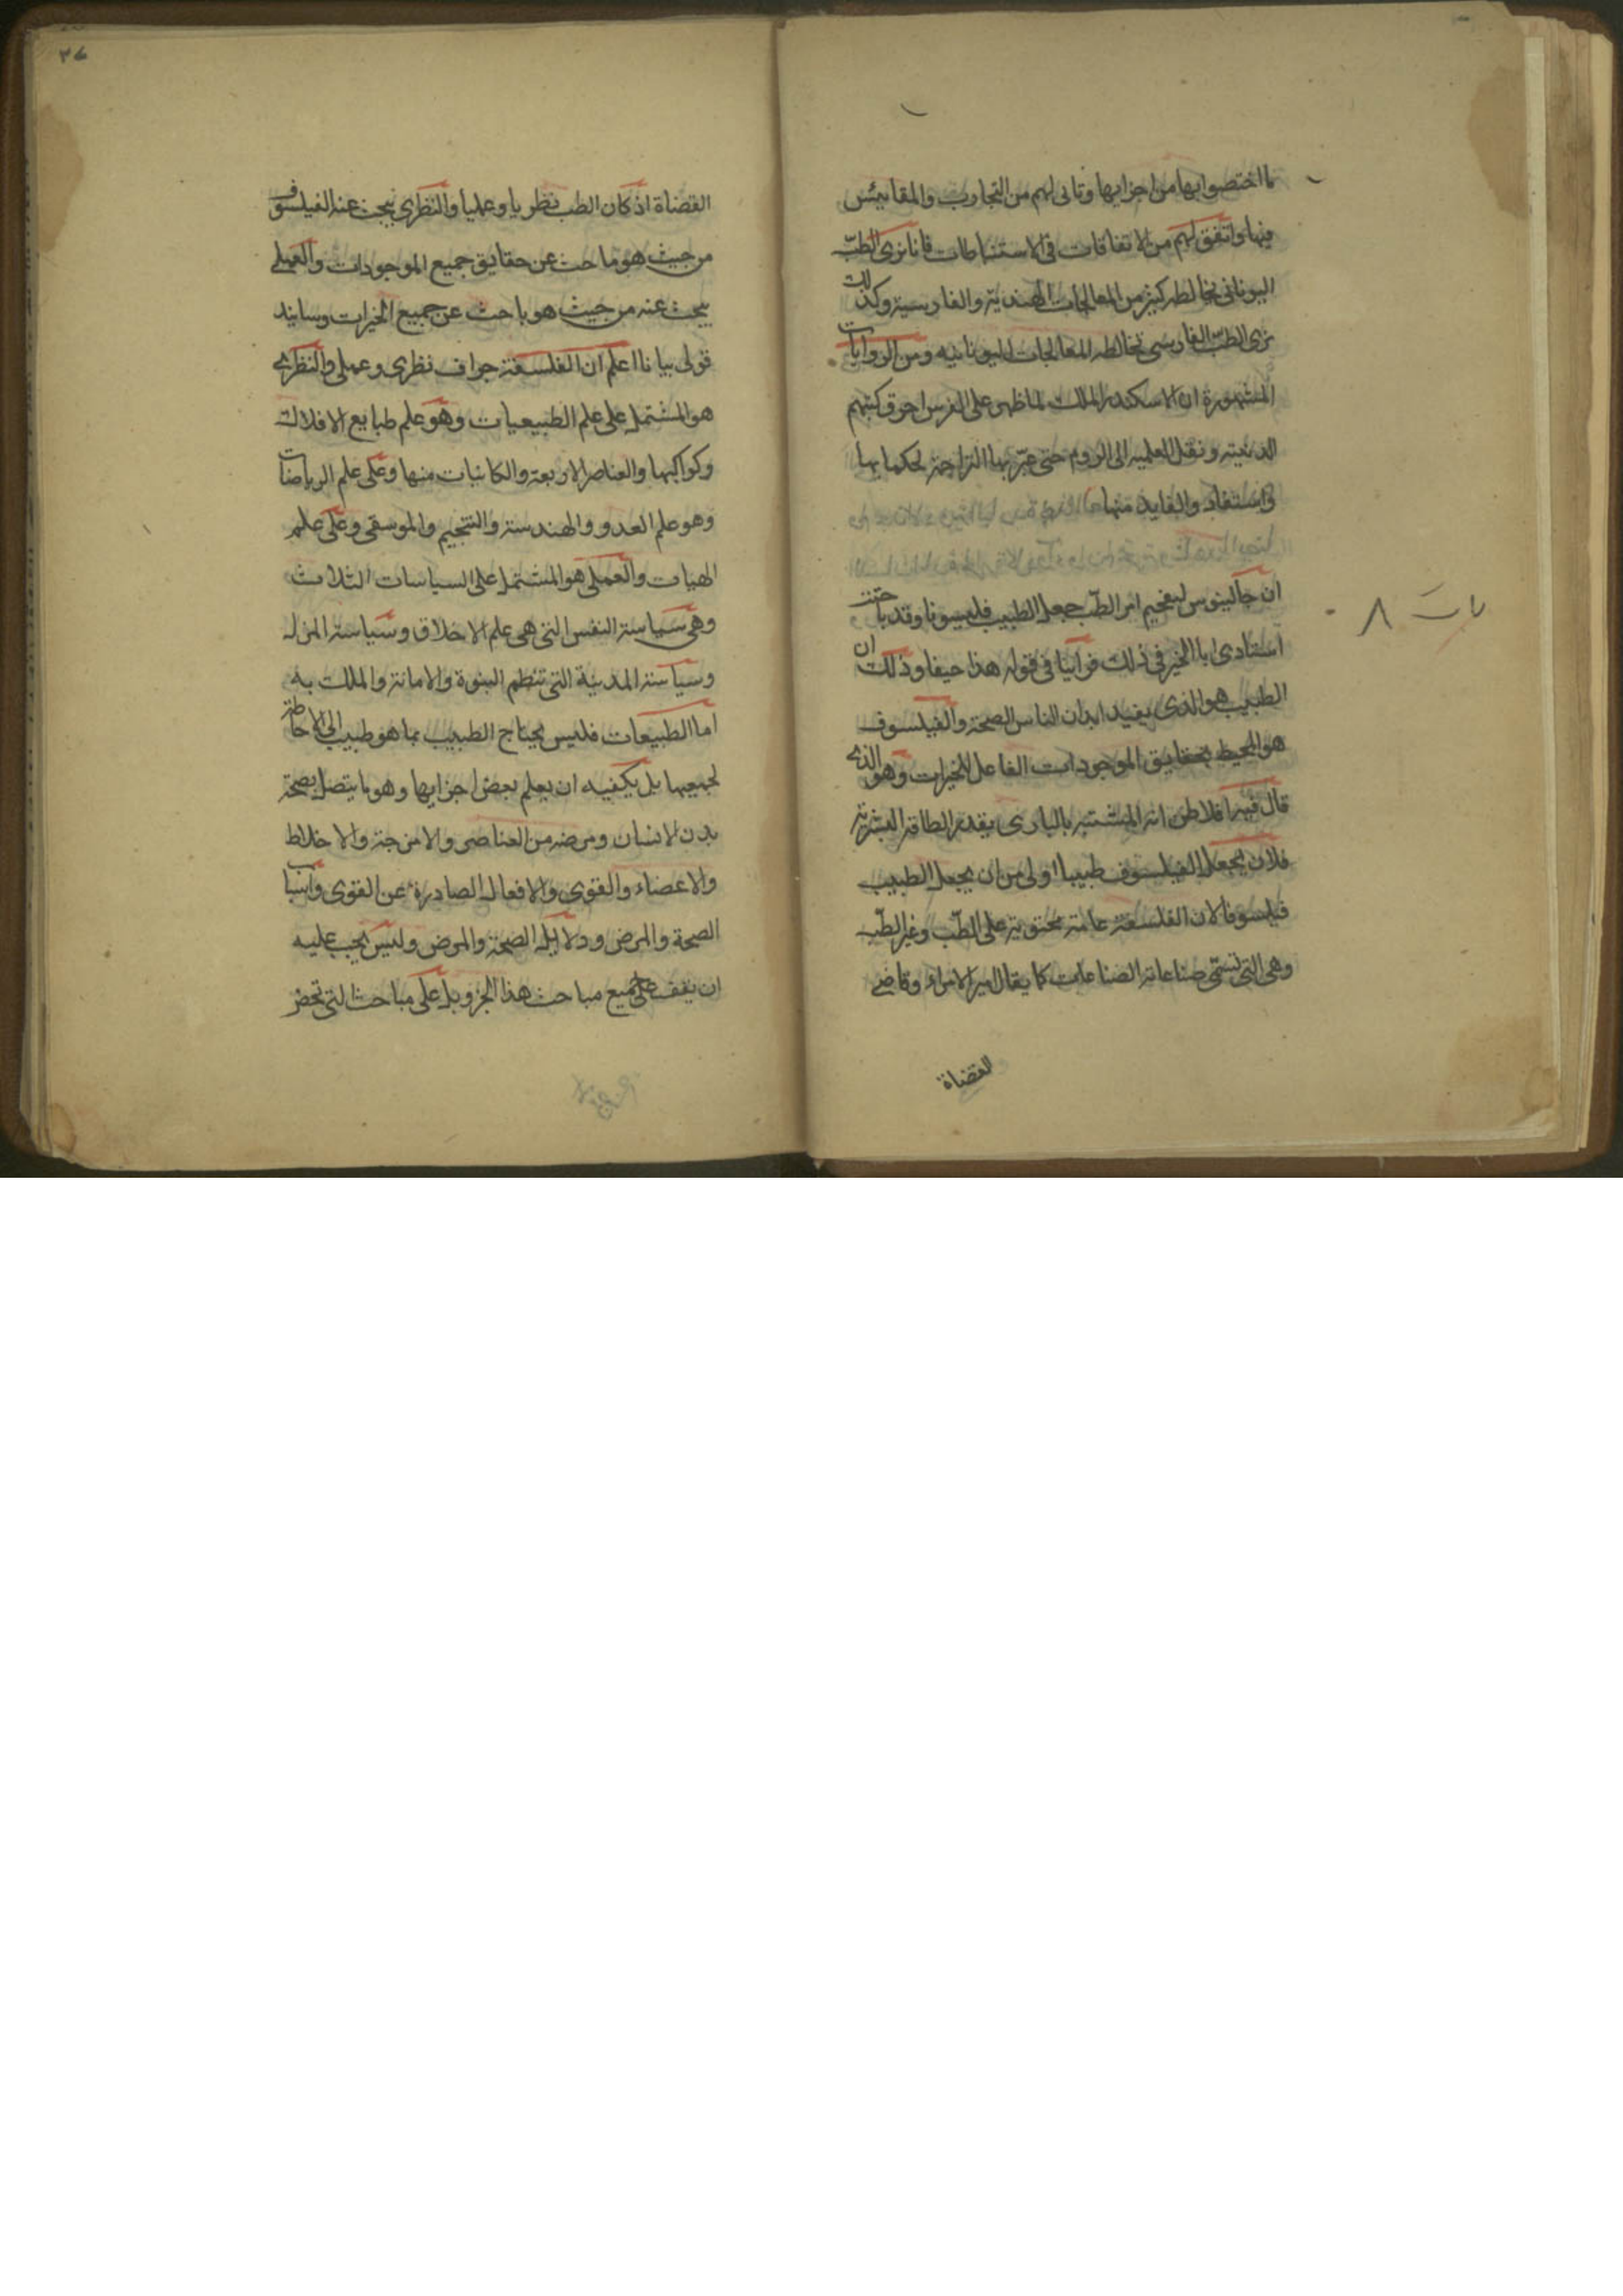 ما اختصوا بها من اجزايها وتاتى لهم من التجارب والمقاييس
فيها واتفق لهم من الاتفاقات فى الاستنباطات فانا نرى الطبّ
اليونانى يخالطه كثير من المعالجات الهندية والفارسية وكذلك
نرى الطبّ الفارسى يخالطه المعالجات اليونانيه ومن الروايات
المشهورة ان الاسكندر الملك لما ظهر على الفرس احرق كتبهم
الدينية ونقل العلميه الى الروم حتى عبّر بها التراجمة لحكمايها
واستفاد والفايده منها
ان جالينوس ليفخيم امر الطبّ جعل الطبيب فليسوفا وقد باحثت
استادى ابا الخير فى ذلك فراينا فى قوله هذا حيفا وذلك ان
الطبيب هو الذى يفيد ابدان الناس الصحة والفيلسوف
هو المحيط بحقايق الموجودات الفاعل للخيرات وهو الذى
قال فيه افلاطن انه المتشبه بالبارى بقدر الطاقة البشرية
فلان يجعل الفيلسوف طبيبا اولى من ان يجعل الطبيب
فيلسوفا لان الفلسفة عامة محتوية على الطب وغير الطبّ
وهى التى تسمّى صناعة الصناعات كما يقال امير الامراء وقاضى
القضاة
باب ٨
٣٧
القضاة اذ كان الطب نظريا وعمليا والنظرى يبحث عنه الفيلسوف
من حيث هو باحث عن حقايق جميع الموجودات والعملى
يبحث عنه من حيث هو باحث عن جميع الخيرات وسازيد
قولى بيانا اعلم ان الفلسفة جزاف نظرى وعملى والنظرى
هو المشتمل على علم الطبيعيات وهو علم طبايع الافلاك
وكواكبها والعناصر الاربعة والكاينات منها وعلى علم الرياضات
وهو علم العدد والهندسة والتنجيم والموسقى وعلى علم
الهيات والعملى هو المشتمل على السياسات الثلاث
وهى سياسة النفس التى هى علم الاخلاق وسياسة المنزل
وسياسة المدنية التى تنظم النبوة والامانة والملك به
اما الطبيعات فليس يحتاج الطبيب بما هو طبيب الى الاحاطة
لجميعها بل يكفيه ان يعلم بعض اجزايها وهو ما يتصل بصحة
بدن الانسان ومرضه من العناصر والامزجة والاخلاط
والاعضاء والقوى والافعال الصادرة عن القوى واسباب
الصحة والمرض ودلايل الصحة والمرض وليس يجب عليه
ان يقف على جميع مباحث هذا الجزو بل على مباحث التى تحضر